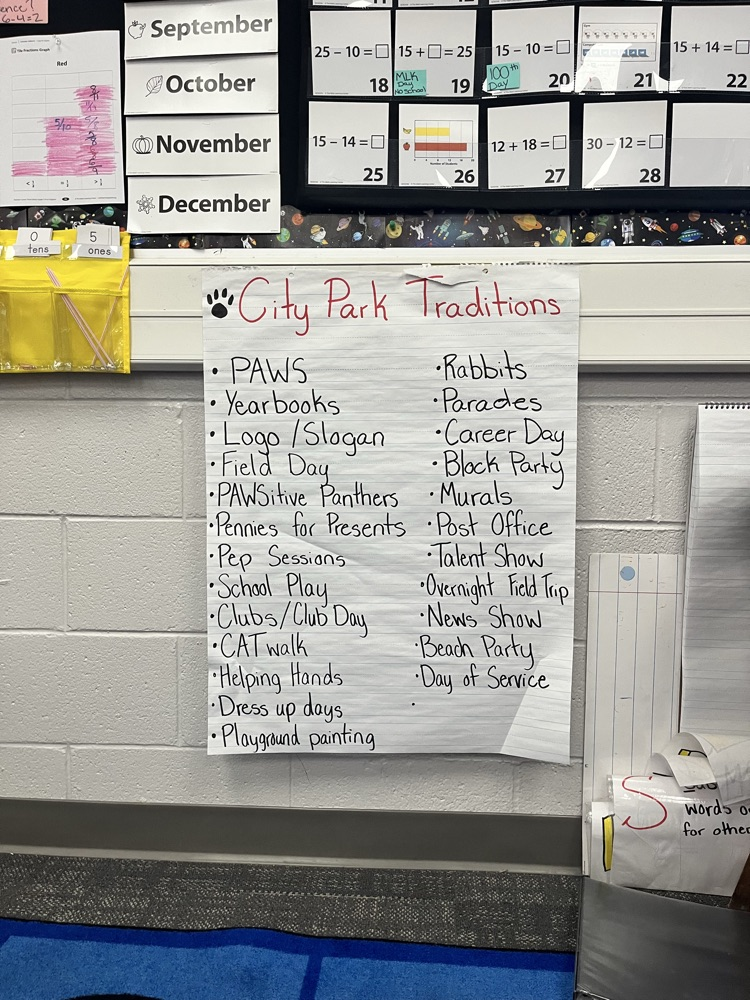 6-4=2
The Fractions Graph
Red
5/10
September
October
November
December
25 – 10 = □
18
15 + □ = 25
MLK
Day
No School
19
15 – 10 = □
100th
Day
20
21
15 + 14 = □
22
15 – 14 = □
25
Number of Students
26
12 + 18 = □
27
30 – 12 = □
28
0
tens
5
ones
City Park Traditions
• PAWS
• Yearbooks
• Logo/Slogan
• Field Day
• PAWSitive Panthers
• Pennies for Presents
• Pep Sessions
• School Play
• Clubs/Club Day
• CATwalk
• Helping Hands
• Dress up days
• Playground painting
• Rabbits
• Parades
• Career Day
• Block Party
• Murals
• Post Office
• Talent Show
• Overnight Field Trip
• News Show
• Beach Party
• Day of Service
•
S
words
for other